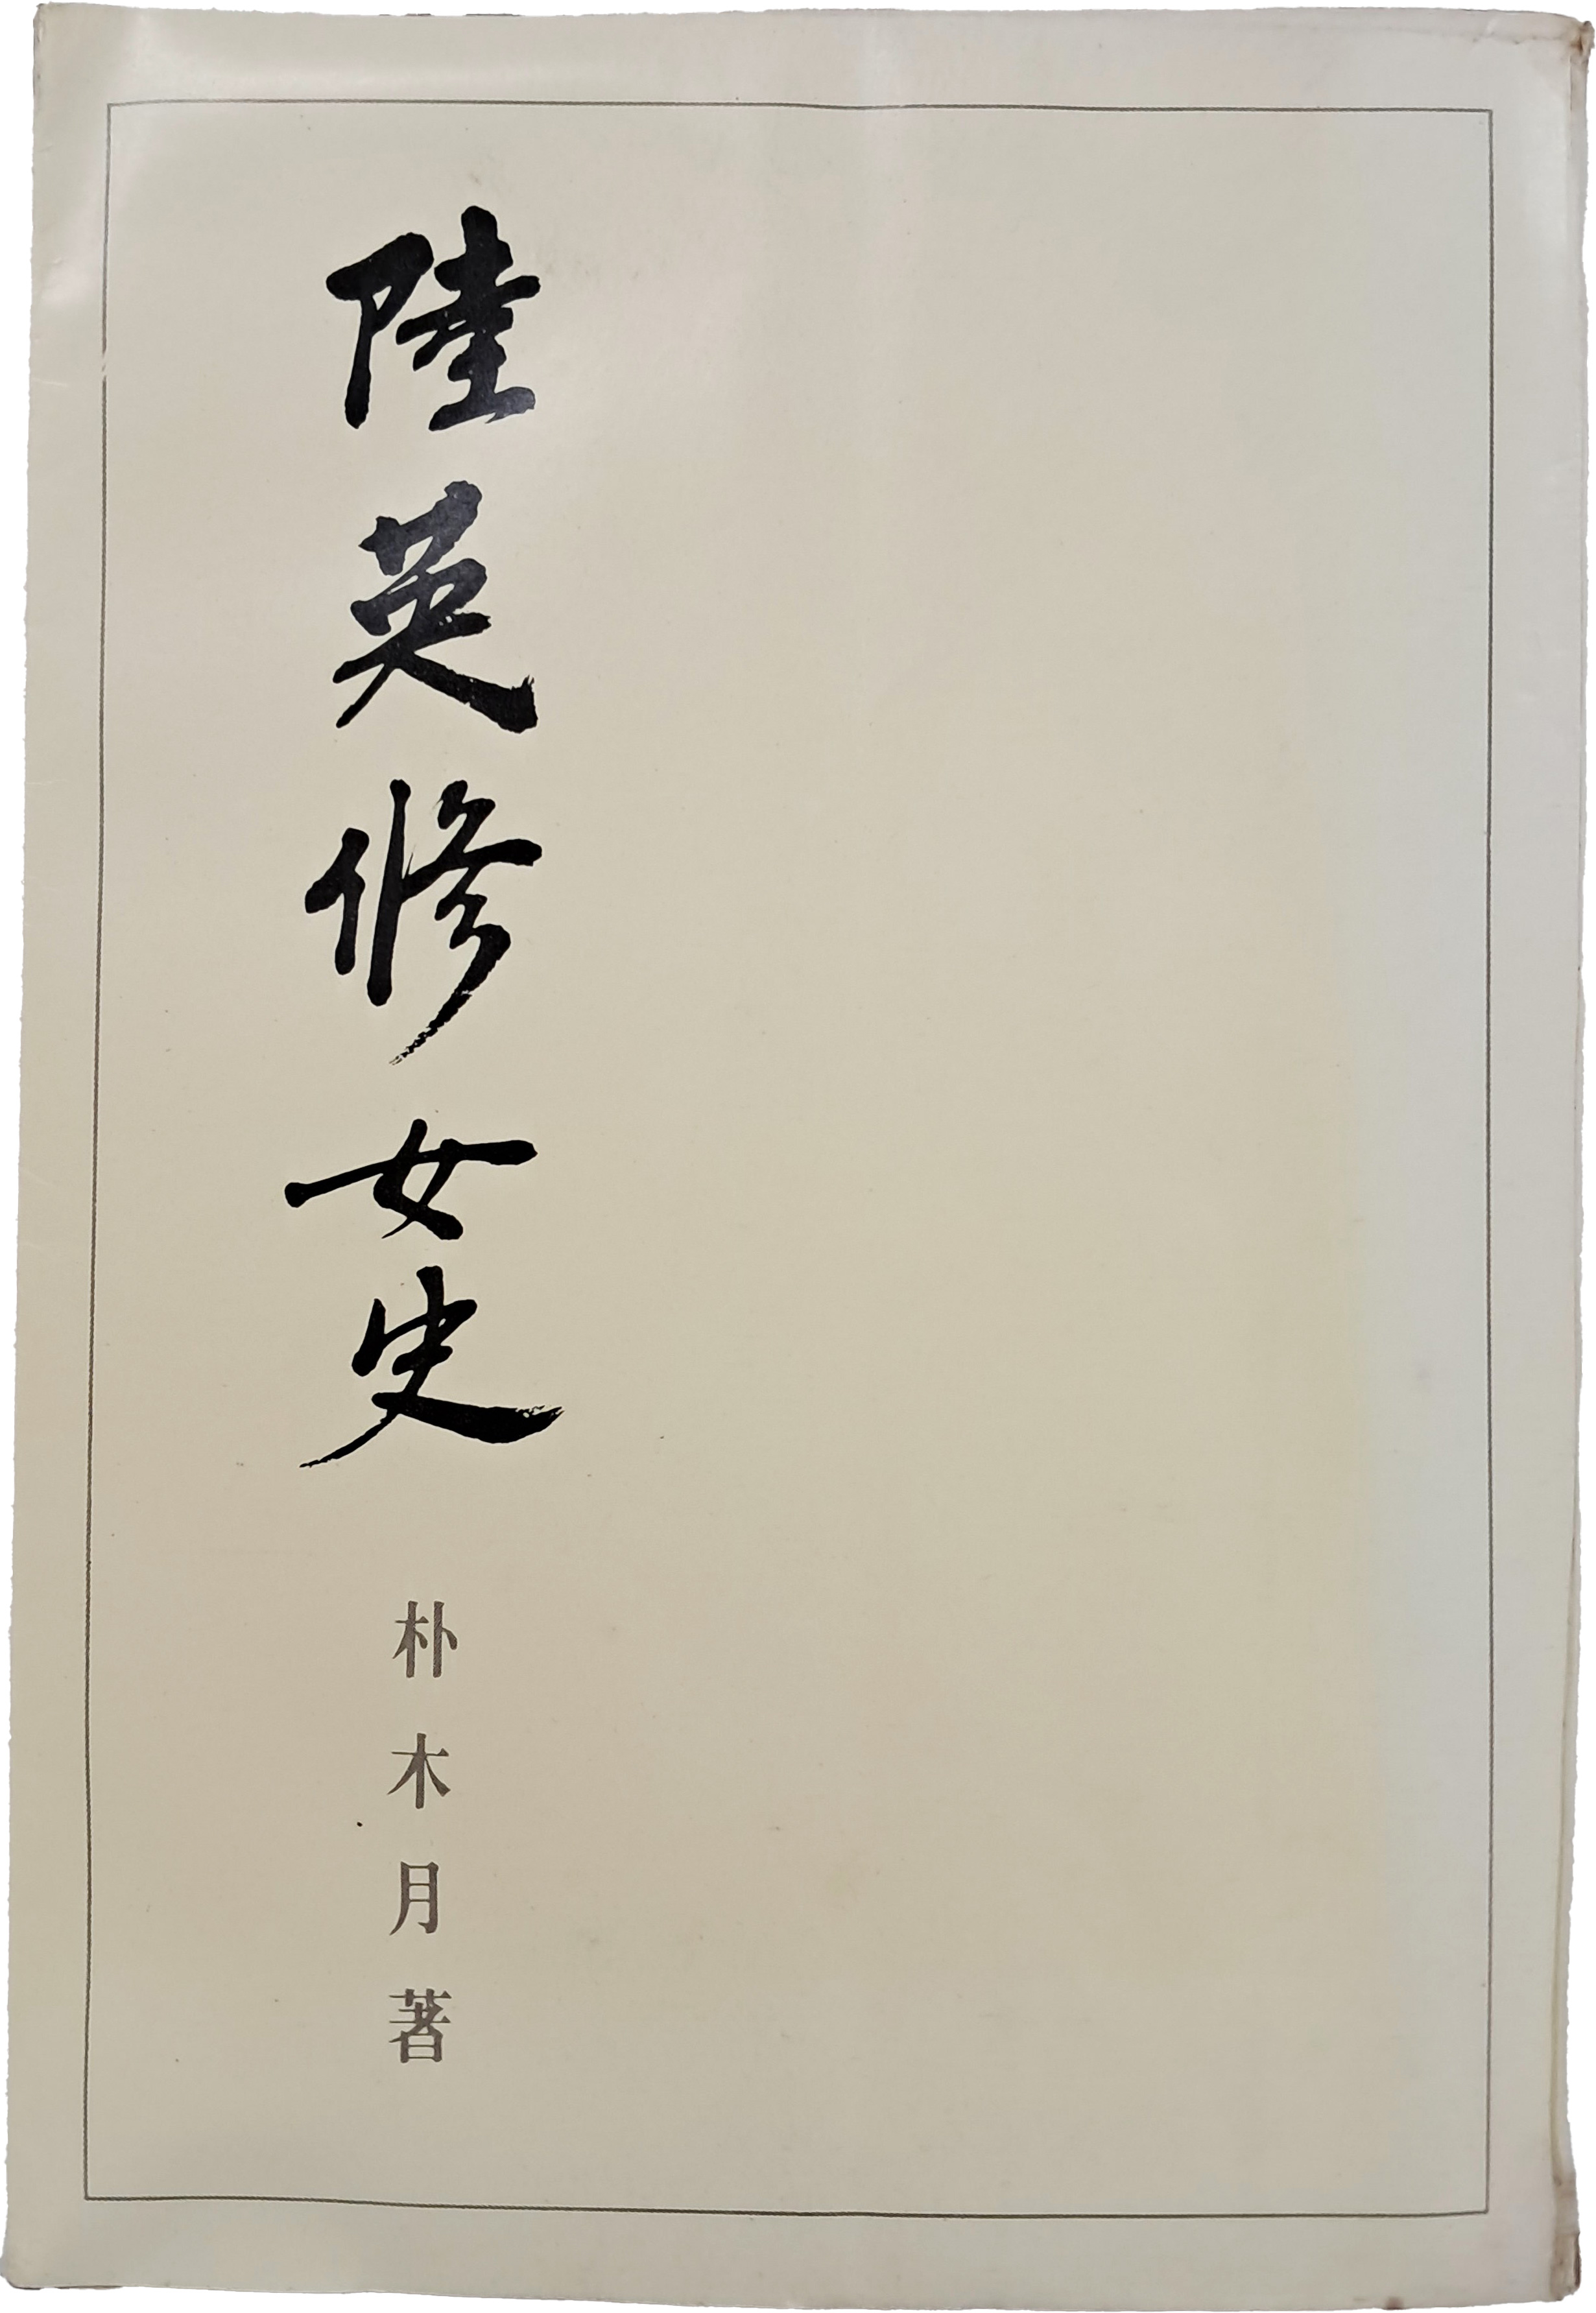 陸英修女史
朴木月著